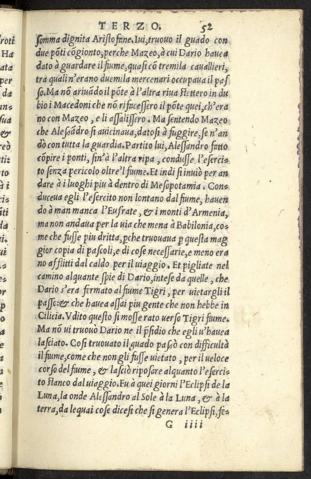 TERZO. 52
somma dignita Aristofine. lui, truouo il guado con
due põti cõgionto, perche Mazeo, à cui Dario hauea
dato à guardare il fiume, quasi cõ tremila cauallieri,
tra quali n'erano duemila mercenari occupaua il pas
so. Ma nõ ariuando il põte à l'altra riua stettero in du
bio i Macedoni che nõ rifucessero il põte quei, ch'era
no con Mazeo, e li assalissero. Ma sentendo Mazeo
che Alessãdro si auicinaua, datosi à fuggire, se n'an
dò con tutta la guardia. Partito lui, Alessandro fatto
cõpire i ponti, sin'à l'altra ripa, condusse l'eserci
to senza pericolo oltre l'fiume. Et indi si inuiò per an
dare à i luoghi più à dentro di Mesopotamia. Con-
duceua egli l'esercito non lontano dal fiume, hauen
do à man manca l'Eufrate, & i monti d'Armenia,
ma non andaua per la uia che mena à Babilonia, co-
me che fusse piu dritta, pche truouaua p questa mag
gior copia di pascoli, e di cose necessarie, e meno era
no afflitti dal caldo per il uiaggio. Et pigliate nel
camino alquante spie di Dario, intese da quelle, che
Dario s'era firmato al fiume Tigri, per uietargli il
passo: & che hauea assai piu gente che non hebbe in
Cilicia. Vdito questo si mosse rato uerso Tigri fiume.
Ma nõ ui truouò Dario ne il p̃sidio che egli u'hauea
lasciato. Cosi truouato il guado passò con difficultà
il fiume, come che non gli fusse uietato, per il ueloce
corso del fiume, & lasciò riposare alquanto l'eserci
to stanco dal uiaggio. Fu à quei giorni l'Eclipsi de la
Luna, la onde Alessandro al Sole à la Luna, & à la
terra, da le quai cose dicesi che si genera l'Eclipsi, fe-
G iiii